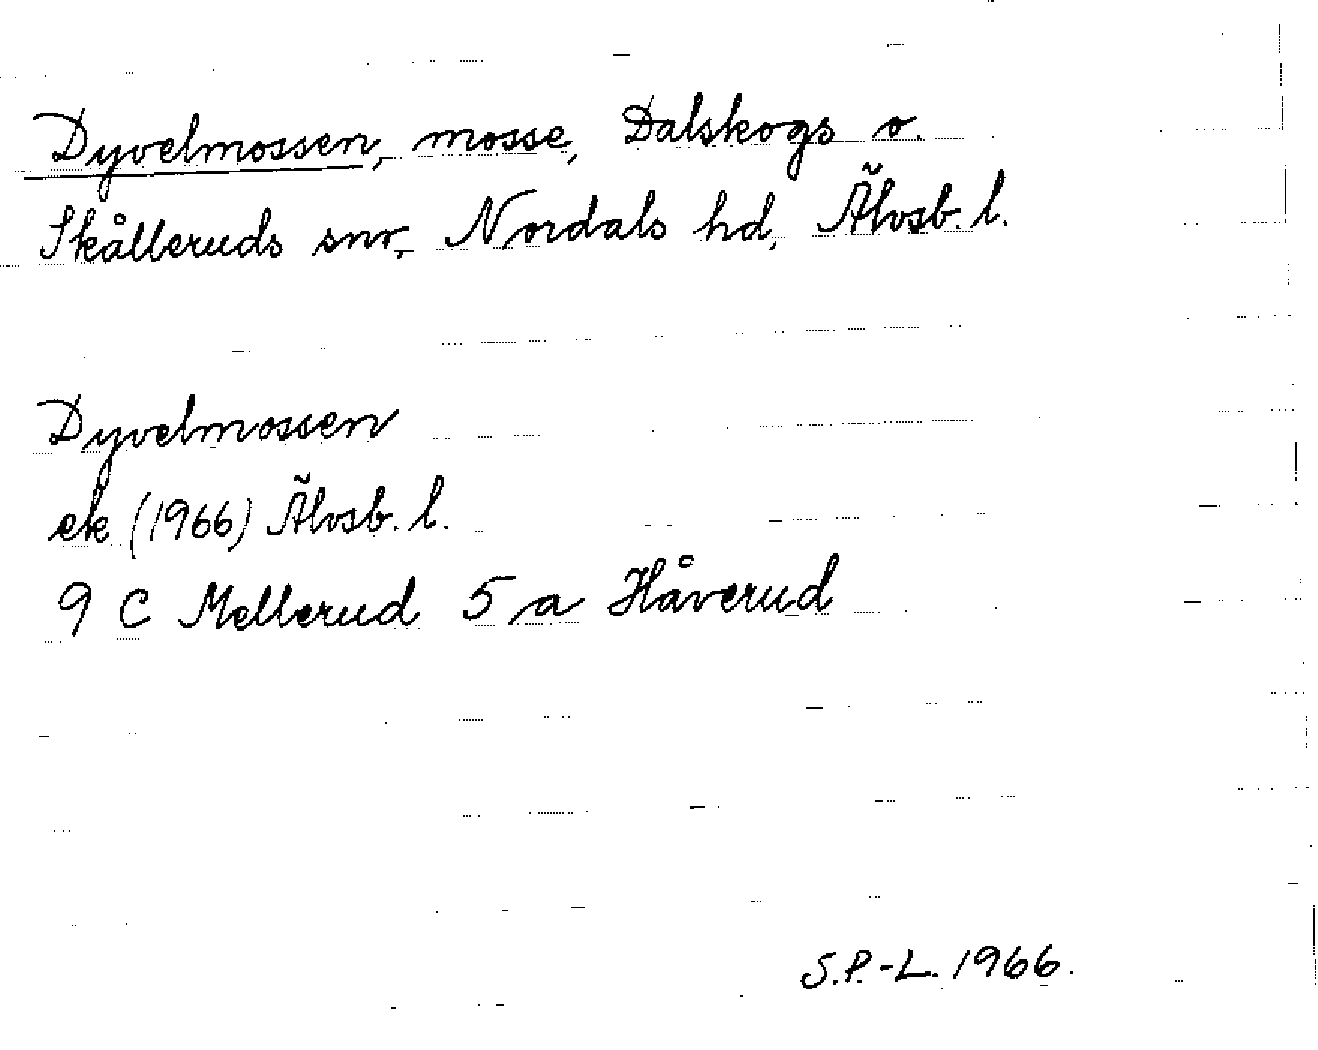 Dyvelmossen, mosse, Dalskogs o.
Skålleruds snr, Nordals hd, Älvsb. l.
Dyvelmossen
ek (1966) Älvsb. l.
9 C Mellerud 5 a Håverud
S.P.-L. 1966.